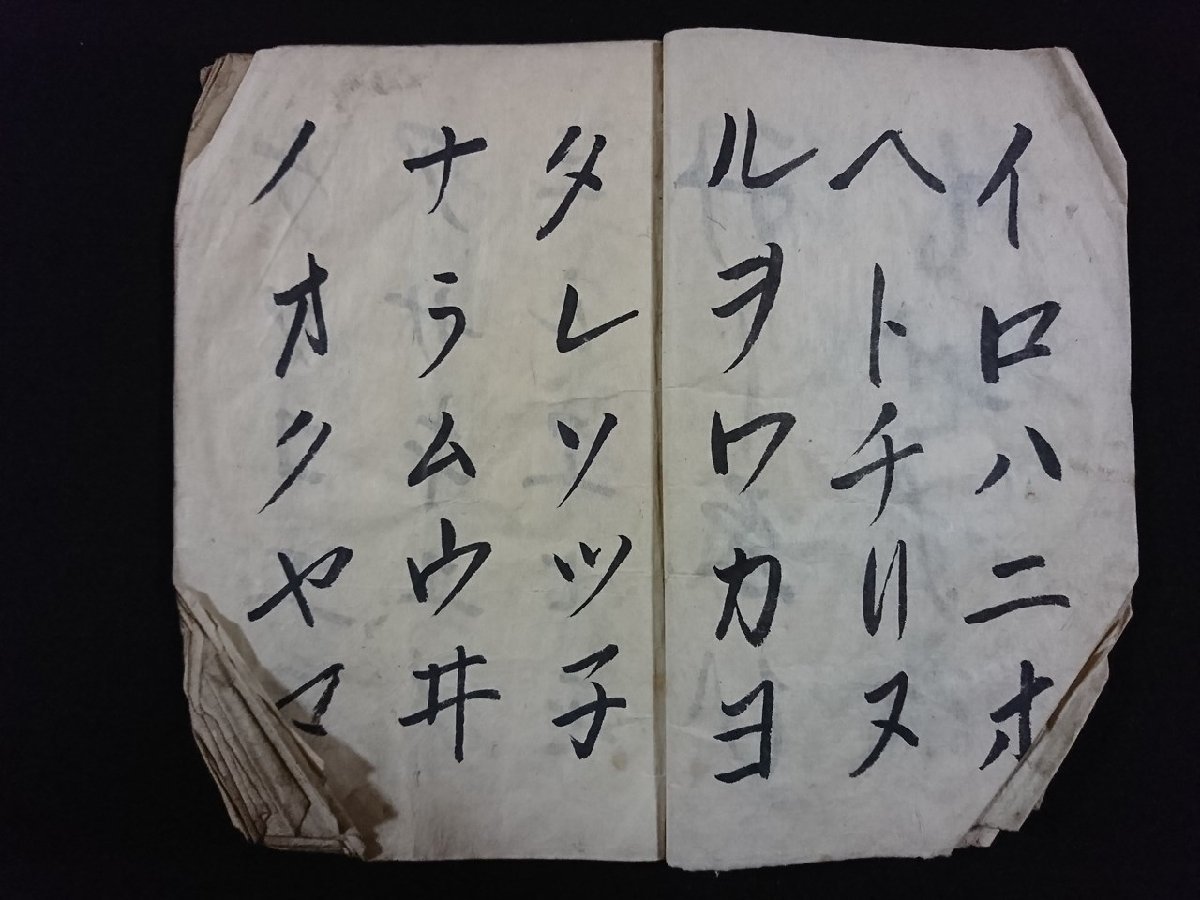 イロハニホ
ヘトチリヌ
ルヲワカヨ
タレソツ子
ナラムウ井
ノオクヤマ